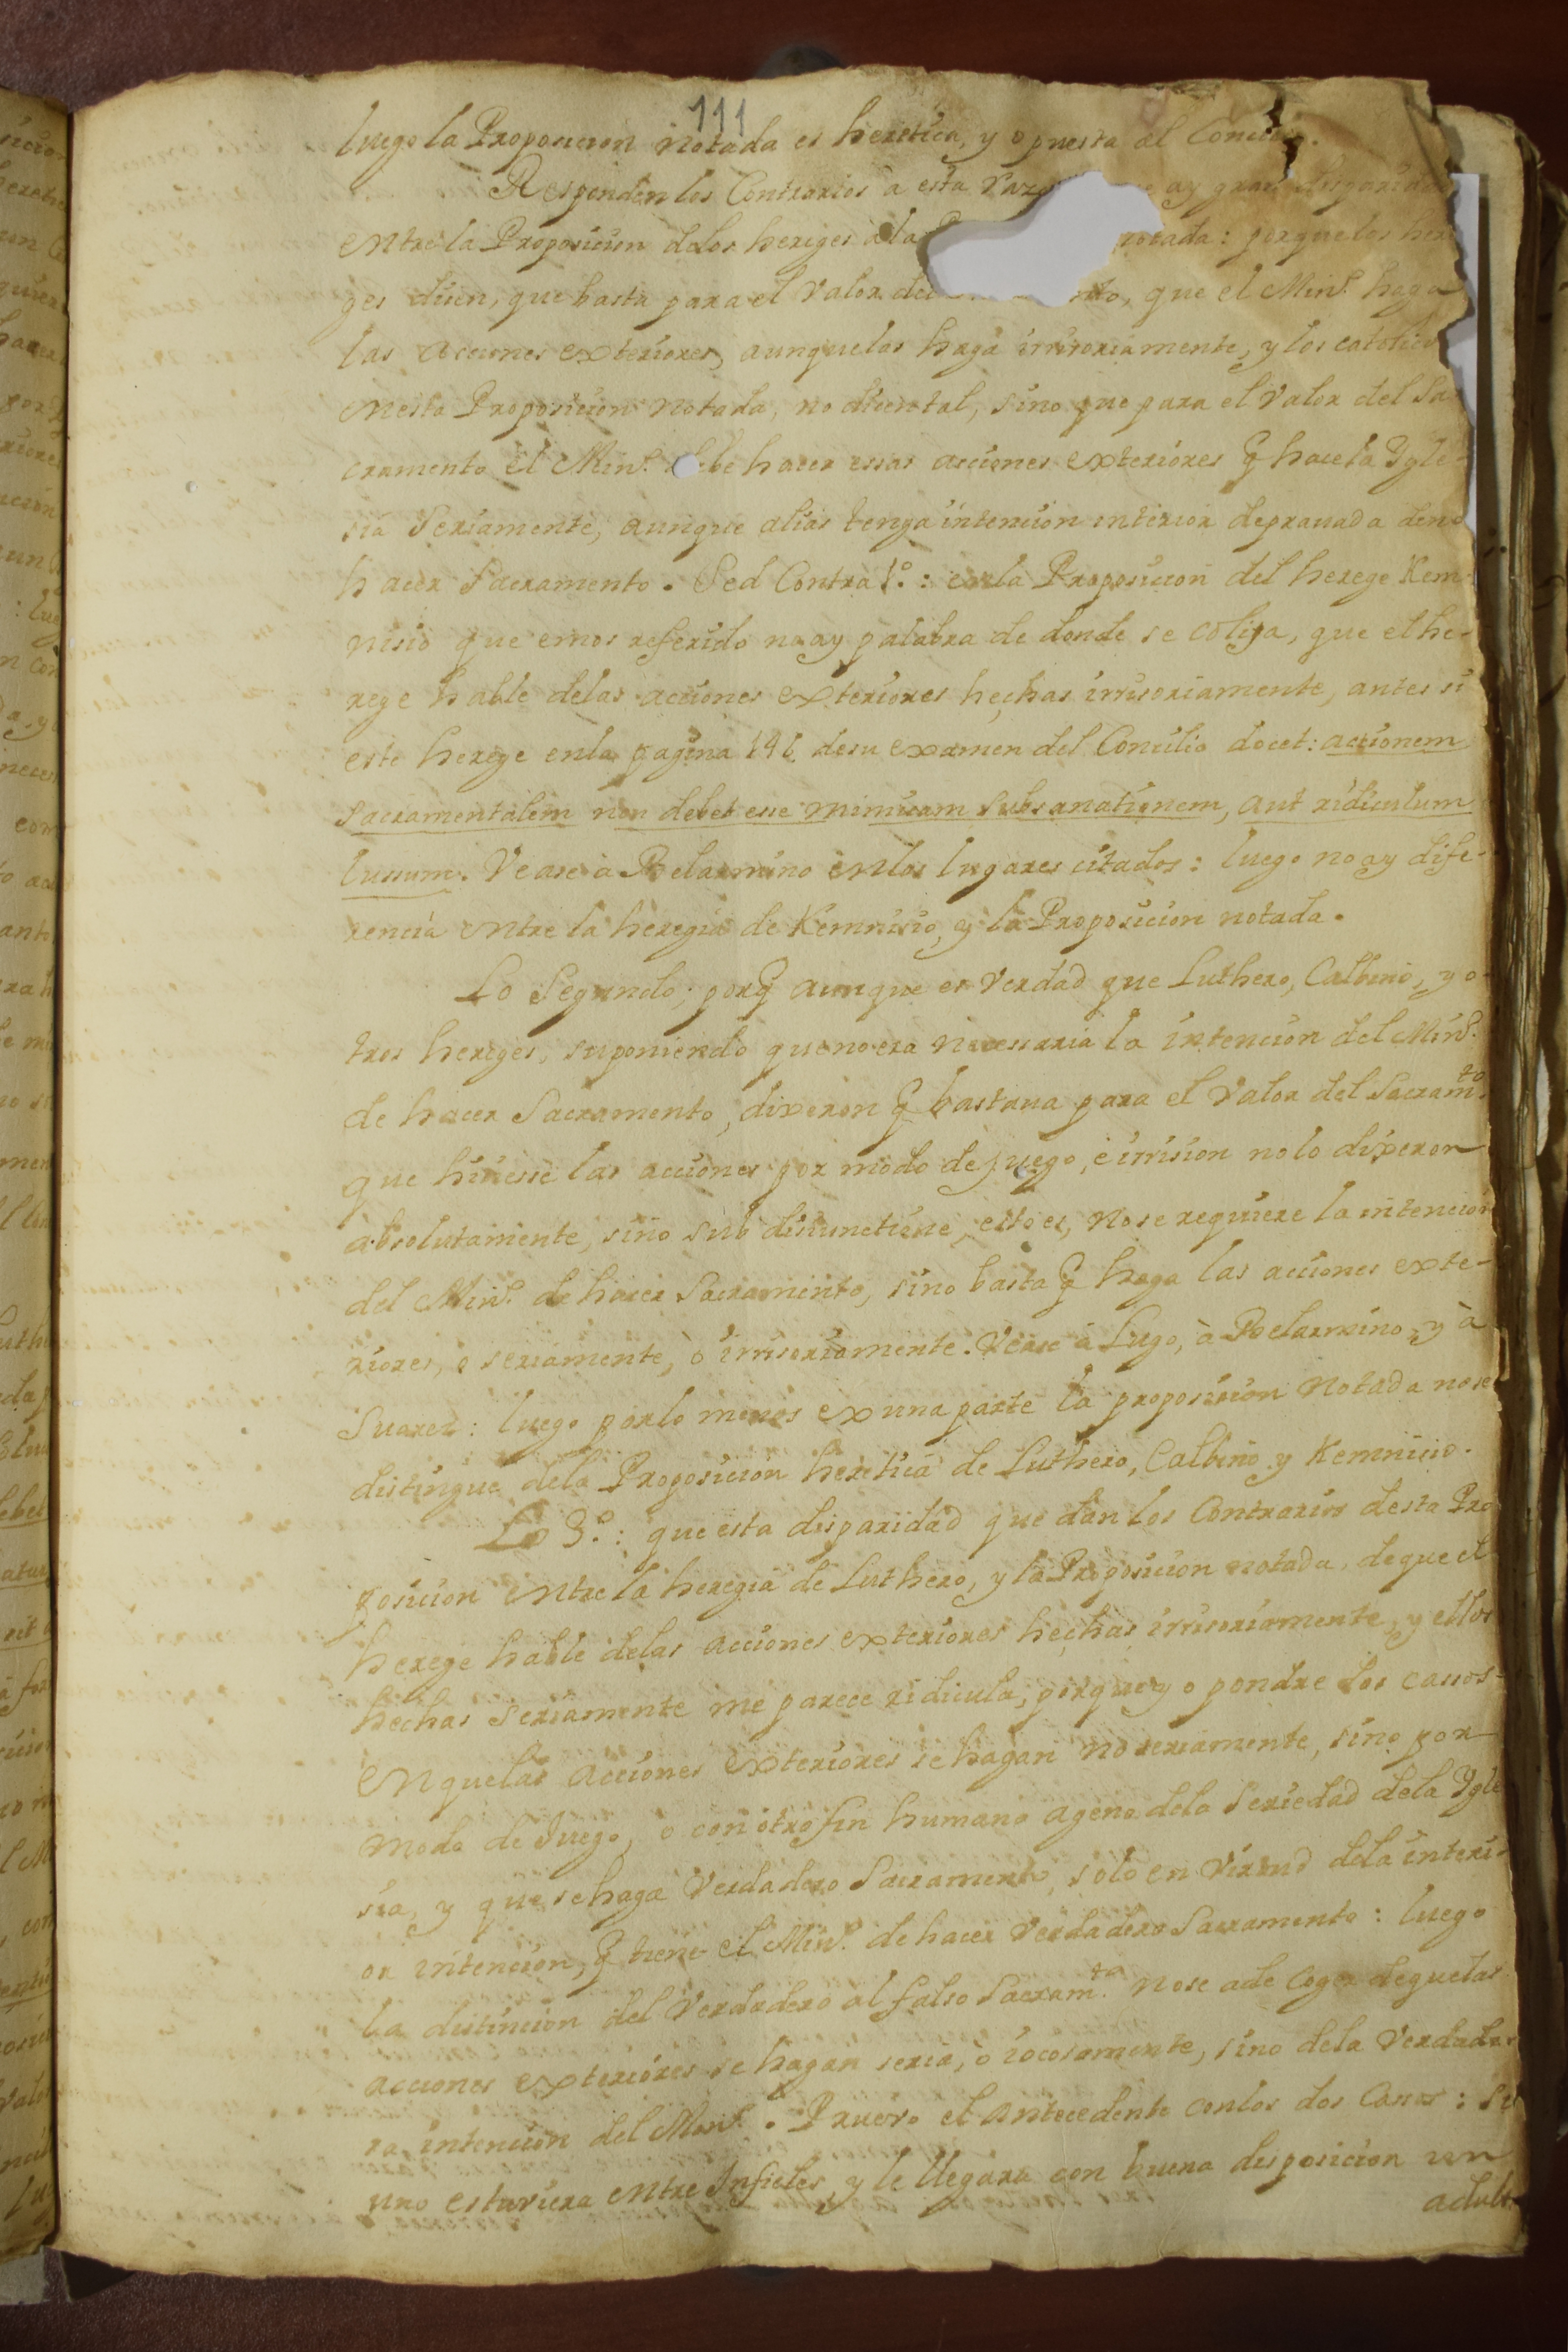 111
luego la Proposicion notada es heretica, y opuesta al Concilio.
Responden los Contrarios a esta ay gran disparidad
entre la Proposicion delos hereges a la notada: porque los here
ges disen, que basta para el Valor del que el Min.º haga
las acciones exteriores, aunque las haga irrisoriamente, y los catolicos
enesta Proposicion notada, no dicen tal, sino que para el Valor del Sa-
cramento el Min.º debe hacer essas acciones exteriores q̃ hace la Ygle-
sia Seriamente, aunque alias tenga intencion interior deprauada deno
hacer Sacramento. Sed Contra 1.º: enla Proposicion del herege Kem-
nisio que emos referido no ay palabra de donde se colija, que el he-
rege hable delas acciones exteriores hechas irrisoriamente, antes si
este herege enla pagina 141 desu examen del Concilio docet: actionem
Sacramentalem non debet esse mimicam subsanationem, aut ridiculum
lusum. Vease à Belarmino enlos lugares citados: luego no ay dife-
rencia entre la heregia de Kemnisio, y la Proposicion notada.
Lo Segundo; porq̃ aunque es Verdad que Luthero, Calbino, y o-
tros hereges, suponiendo que no era necessaria la intencion del Min.º
de hacer Sacramento, dixeron q̃ bastaua para el Valor del Sacram.to
que hiciesse las acciones por modo de juego, e irrision no lo dixeron
absolutamente, sino sub disiunctione, esto es, no se requiere la intencion
del Min.º de hacer Sacramento, sino basta q̃ haga las acciones exte-
riores, o seriamente, ò irrisoriamente. Vease à Lugo, à Belarmino, y à
Suarez: luego porlo menos ex una parte la proposicion notada nose
distingue dela Proposicion heretica de Luthero, Calbino y Kemnicio.
Lo 3.º: que esta disparidad que dan los Contrarios desta Pro
posicion entre la heregia de Luthero, y la Proposicion notada, de que el
herege hable delas acciones exteriores hechas irrisoriamente, y ellos
hechas seriamente me parece ridicula, porque yo pondre dos casos
enquelas acciones exteriores se hagan no seriamente, sino por
modo de Juego, o con otro fin humano ageno dela Seriedad dela Ygle
sia, y que se haga Verdadero Sacramento, solo en Virtud dela interi-
or intencion, q̃ tiene el Min.º de hacer Verdadero Sacramento: luego
la distincion del Verdadero al falso Sacram.to nose a de coger de que las
acciones exteriores se hagan seria, ò iocosamente, sino dela Verdade-
ra intencion del Min.º. Pruevo el Antecedente conlos dos Casos: Si
uno estuviera entre Infieles, y le llegara con buena disposicion un
adulto